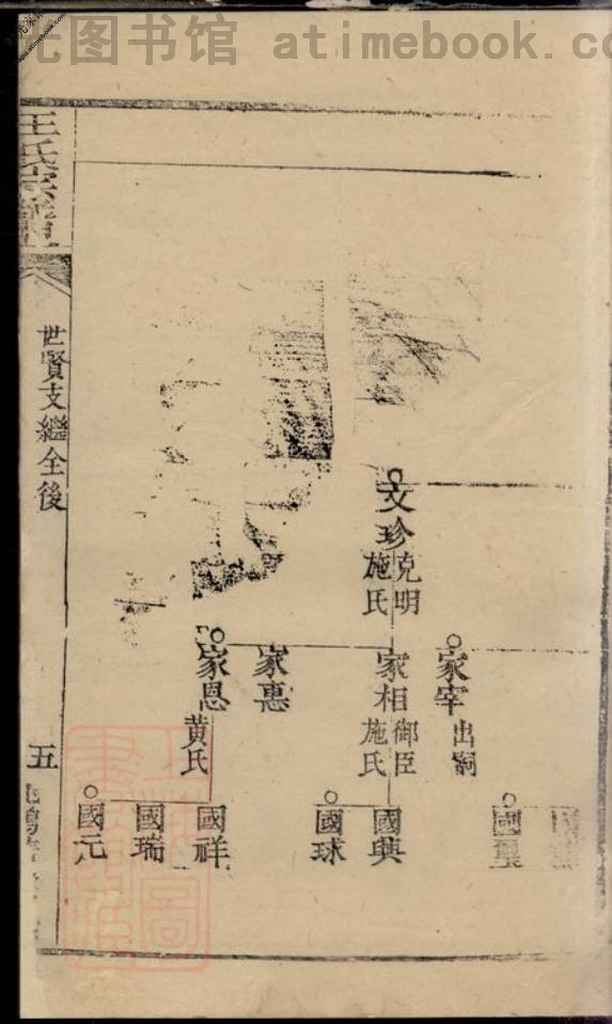 光图书馆 atimebook.co
文珍
克明
施氏
家宰
出嗣
家相
御臣
施氏
家惠
家恩
黄氏
國興
國球
國祥
國瑞
國元
王氏宗譜
世賢支繼全後
五